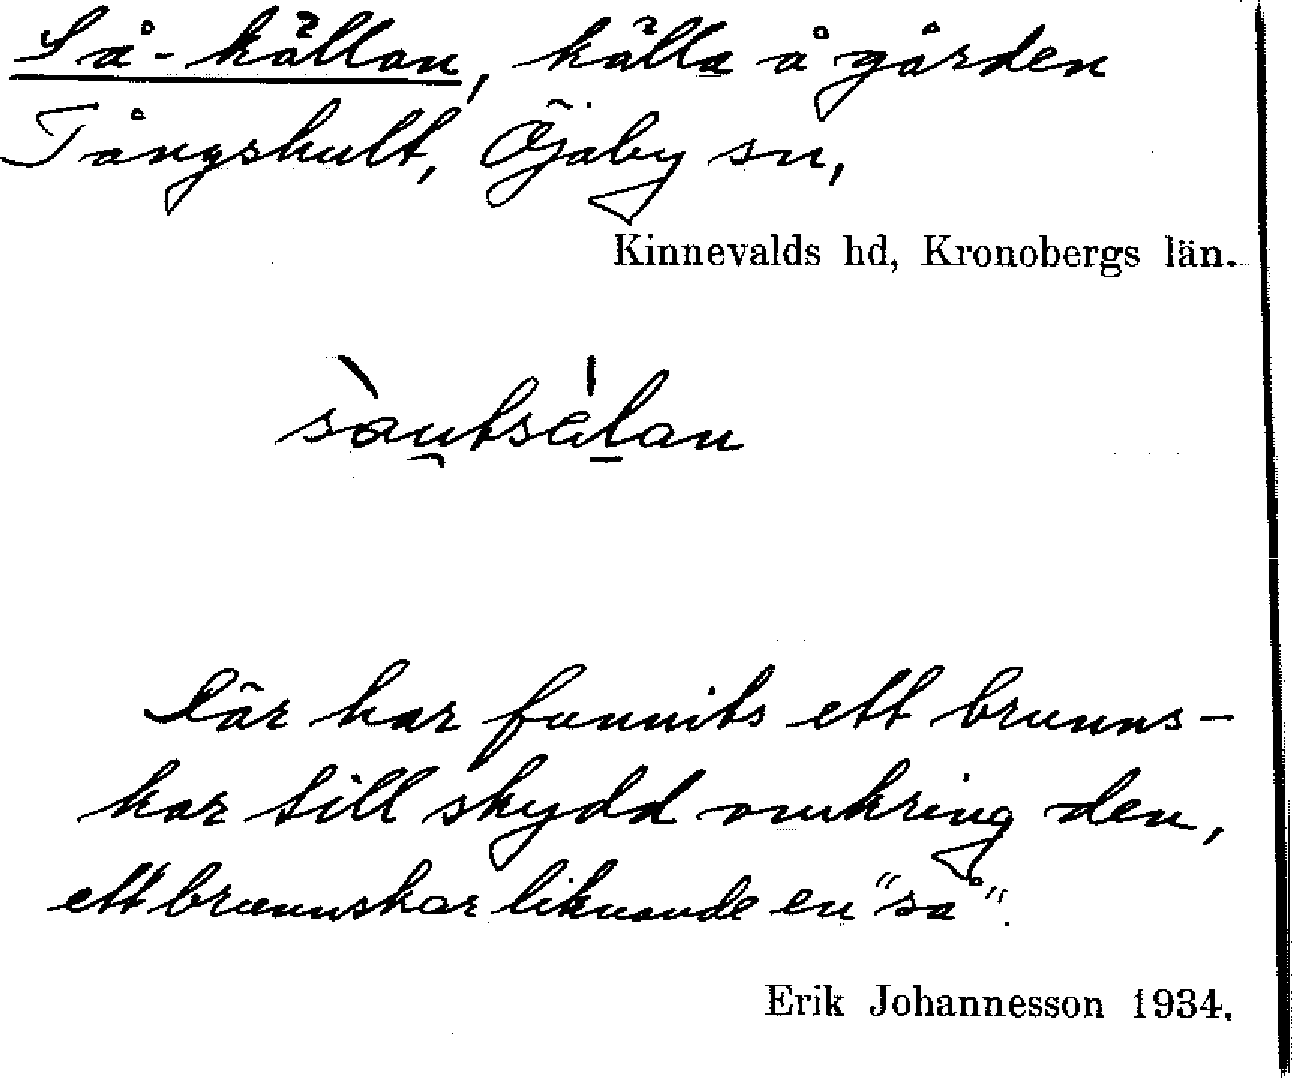 Så-källan, källa å gården
Tångshult, Öjaby sn,
Kinnevalds hd, Kronobergs län.
sàu̯tsá̱lan
Där har funnits ett brunns-
kar till skydd omkring den,
ett brunnskar liknande en "så".
Erik Johannesson 1934.